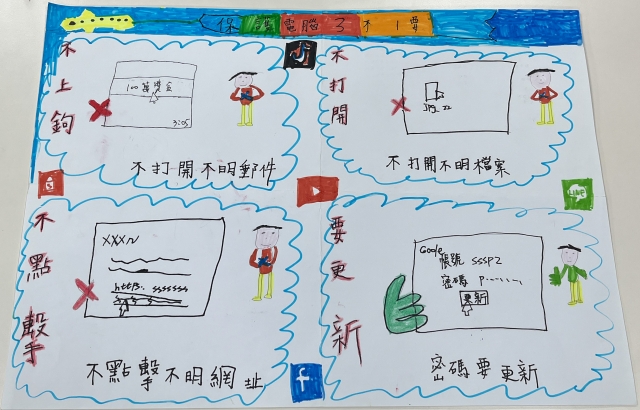 保護電腦3不1要
不上鉤
100萬獎金
3:05
不打開不明郵件
不打開
不打開不明檔案
不點擊
XXXN
https:
不點擊不明網址
LINE
要更新
Google
帳號 SSSP2
密碼
更新
密碼要更新
f